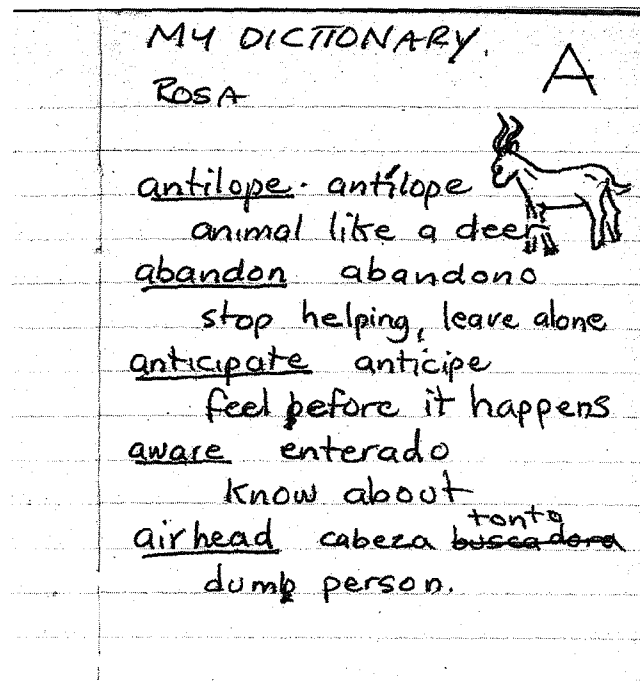 MY DICTIONARY.
A
ROSA
antilope. antílope
animal like a deer
abandon abandono
stop helping, leave alone
anticipate anticipe
feel before it happens
aware enterado
know about
airhead cabeza buscadora tonta
dumb person.